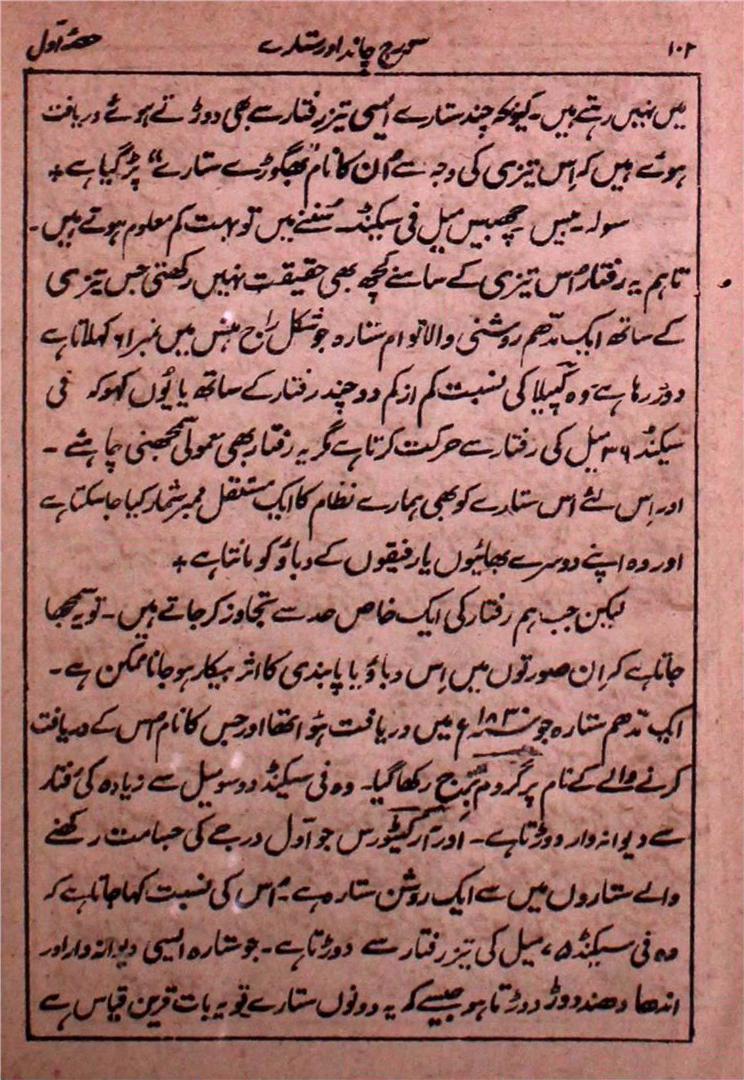 ۱۰۲ سورج چاند اور ستارے حصہ اول
میں نہیں رہتے ہیں۔ کیونکہ چند ستارے ایسی تیز رفتار سے بھی دوڑتے ہوئے دریافت
ہوئے ہیں کہ اِس تیزی کی وجہ سے اُن کا نام "بھگوڑے ستارے" پڑ گیا ہے +
سولہ۔ بیس چھبیس میل فی سیکنڈ۔ سُننے میں تو بہت کم معلوم ہوتے ہیں۔
تاہم یہ رفتار اُس تیزی کے سامنے کچھ بھی حقیقت نہیں رکھتی جس تیزی
کے ساتھ ایک مدّھم روشنی والا توام ستارہ جو شکل راج ہنس میں نمبر ۶۱ کہلاتا ہے
دوڑ رہا ہے وہ کَپیلا کی نسبت کم از کم دو چند رفتار کے ساتھ یا یُوں کہو کہ فی
سیکنڈ ۳۶ میل کی رفتار سے حرکت کرتا ہے مگر یہ رفتار بھی معمولی سمجھنی چاہئے۔
اور اِس لئے اس ستارے کو بھی ہمارے نظام کا ایک مستقل ممبر شمار کیا جا سکتا ہے
اور وہ اپنے دوسرے بھائیوں یا رفیقوں کے دباؤ کو مانتا ہے +
لیکن جب ہم رفتار کی ایک خاص حد سے تجاوز کر جاتے ہیں۔ تو یہ سمجھا
جاتا ہے کہ اِن صورتوں میں اِس دباؤ یا پابندی کا اثر بیکار ہو جانا ممکن ہے۔
ایک مدّھم ستارہ جو ۱۸۳۰ء میں دریافت ہوُا تھا اور جس کا نام اُس کے دریافت
کرنے والے کے نام پر گروم برج رکھا گیا۔ وہ فی سیکنڈ دو سو میل سے زیادہ کی رفتار
سے دیوانہ وار دوڑتا ہے۔ اور آرکٹیورس جو اَوّل درجے کی جسامت رکھنے
والے ستاروں میں سے ایک روشن ستارہ ہے۔ اُس کی نسبت کہا جاتا ہے کہ
وہ فی سیکنڈ ۷۵ میل کی تیز رفتار سے دوڑتا ہے۔ جو ستارہ ایسی دیوانہ وار اور
اندھا دھند دوڑ دوڑتا ہو جیسے کہ یہ دونوں ستارے تو یہ بات قرین قیاس ہے